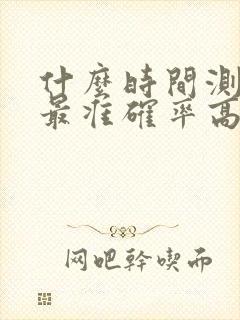 什麼時間測
最准確率高
网吧幹喫而